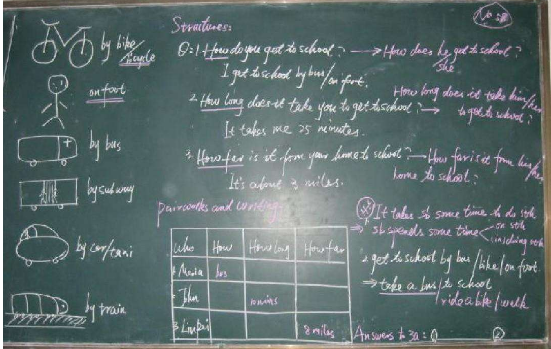 by bike
bicycle
on foot
by bus
by subway
by car/taxi
by train
Structures:
Q: 1. How do you get to school? → How does he get to school?
she
I get to school by bus/on foot.
2. How long does it take you to get to school? → How long does it take him/her
to get to school?
It takes me 25 minutes.
3. How far is it from your home to school? → How far is it from his/her
home to school?
It's about 3 miles.
pairworks and writing.
Who How How long How far
1. Maria bus
2. John 10 mins
3. 8 miles
It takes sb some time to do sth
sb spends some time on sth
in doing sth
2. get to school by bus / bike / on foot
→ take a bus to school
ride a bike / walk
Answers to 3a: ① ②